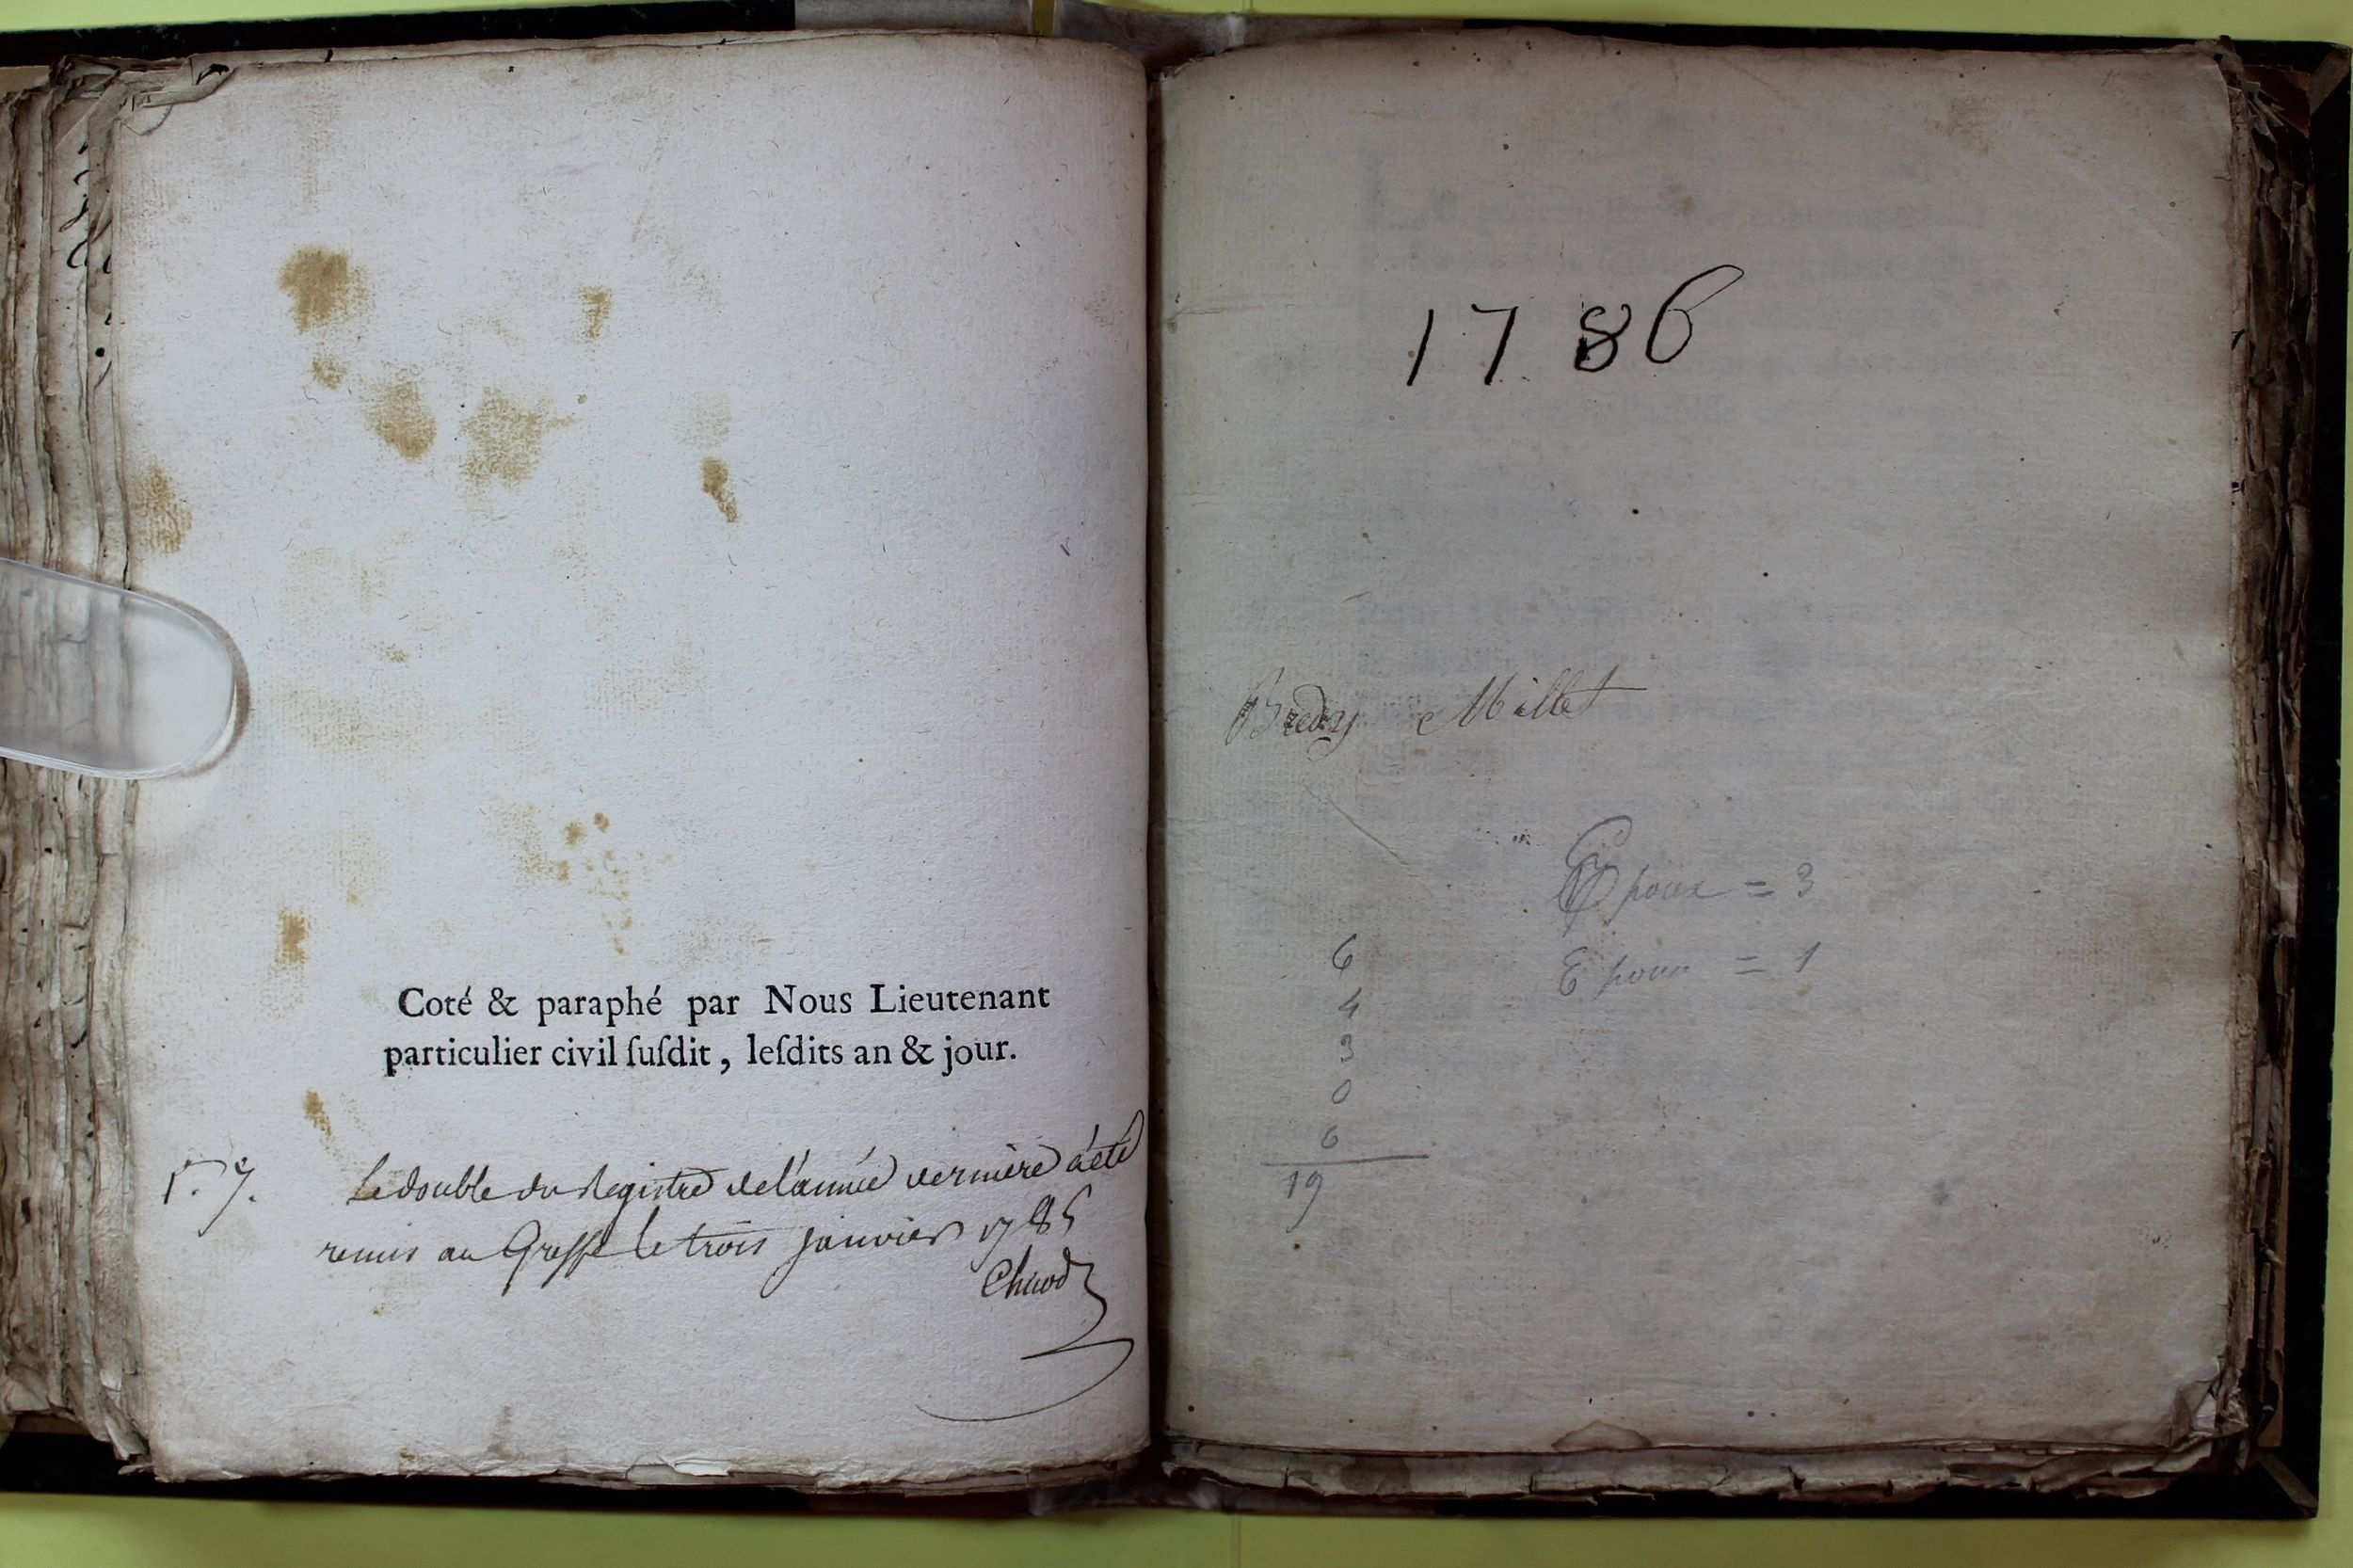 Coté & paraphé par Nous Lieutenant
particulier civil ſuſdit, leſdits an & jour.
Le double du Registre de l'année derniere a été
remis au Greffe le trois janvier 1785
1786
Millet
Epoux = 3
Epoux = 1
6
4
3
0
6
19